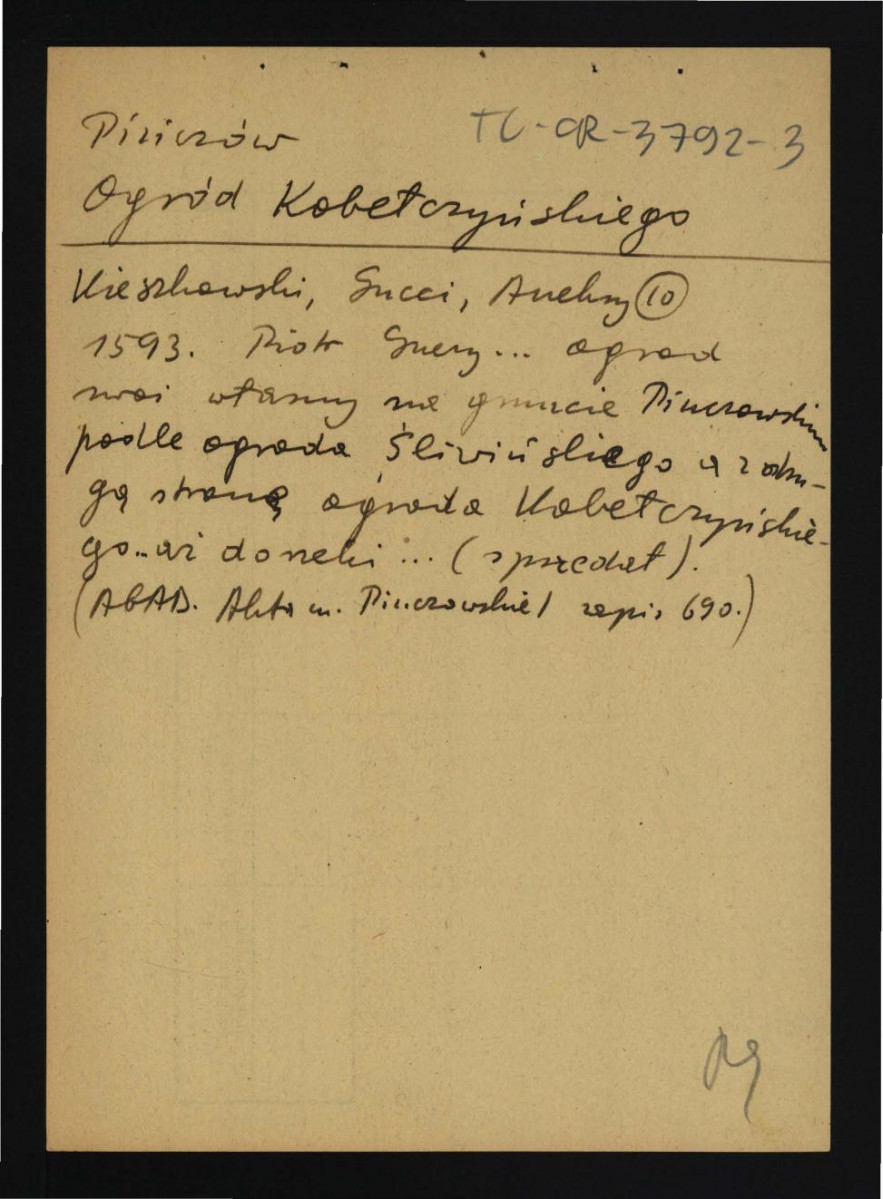 Pińczów TL-OR-3792-3
Ogród Kobetczyńskiego
Kieszkowski, Gucci, Aneksy 10
1593. Piotr Guczy... ogrod
swoi własny na gruncie Pinczowskim
podle ogroda Śliwińskiego a z dru-
gą stroną ogroda Kobetczyńskie-
go.. aż do rzeki ... (sprzedał).
(AGAD. Akta m. Pinczowskie I zapis 690.)